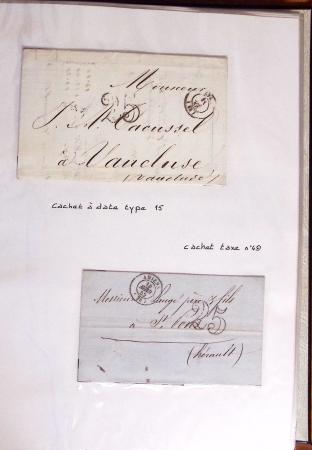 Monsieur
25
J. M. Raoussel
à Vaucluse
(Vaucluse)
Cachet à date type 15
cachet taxe n°49
AMIENS
Messieurs Saugé père & fils
25
à St Pons
(Hérault)